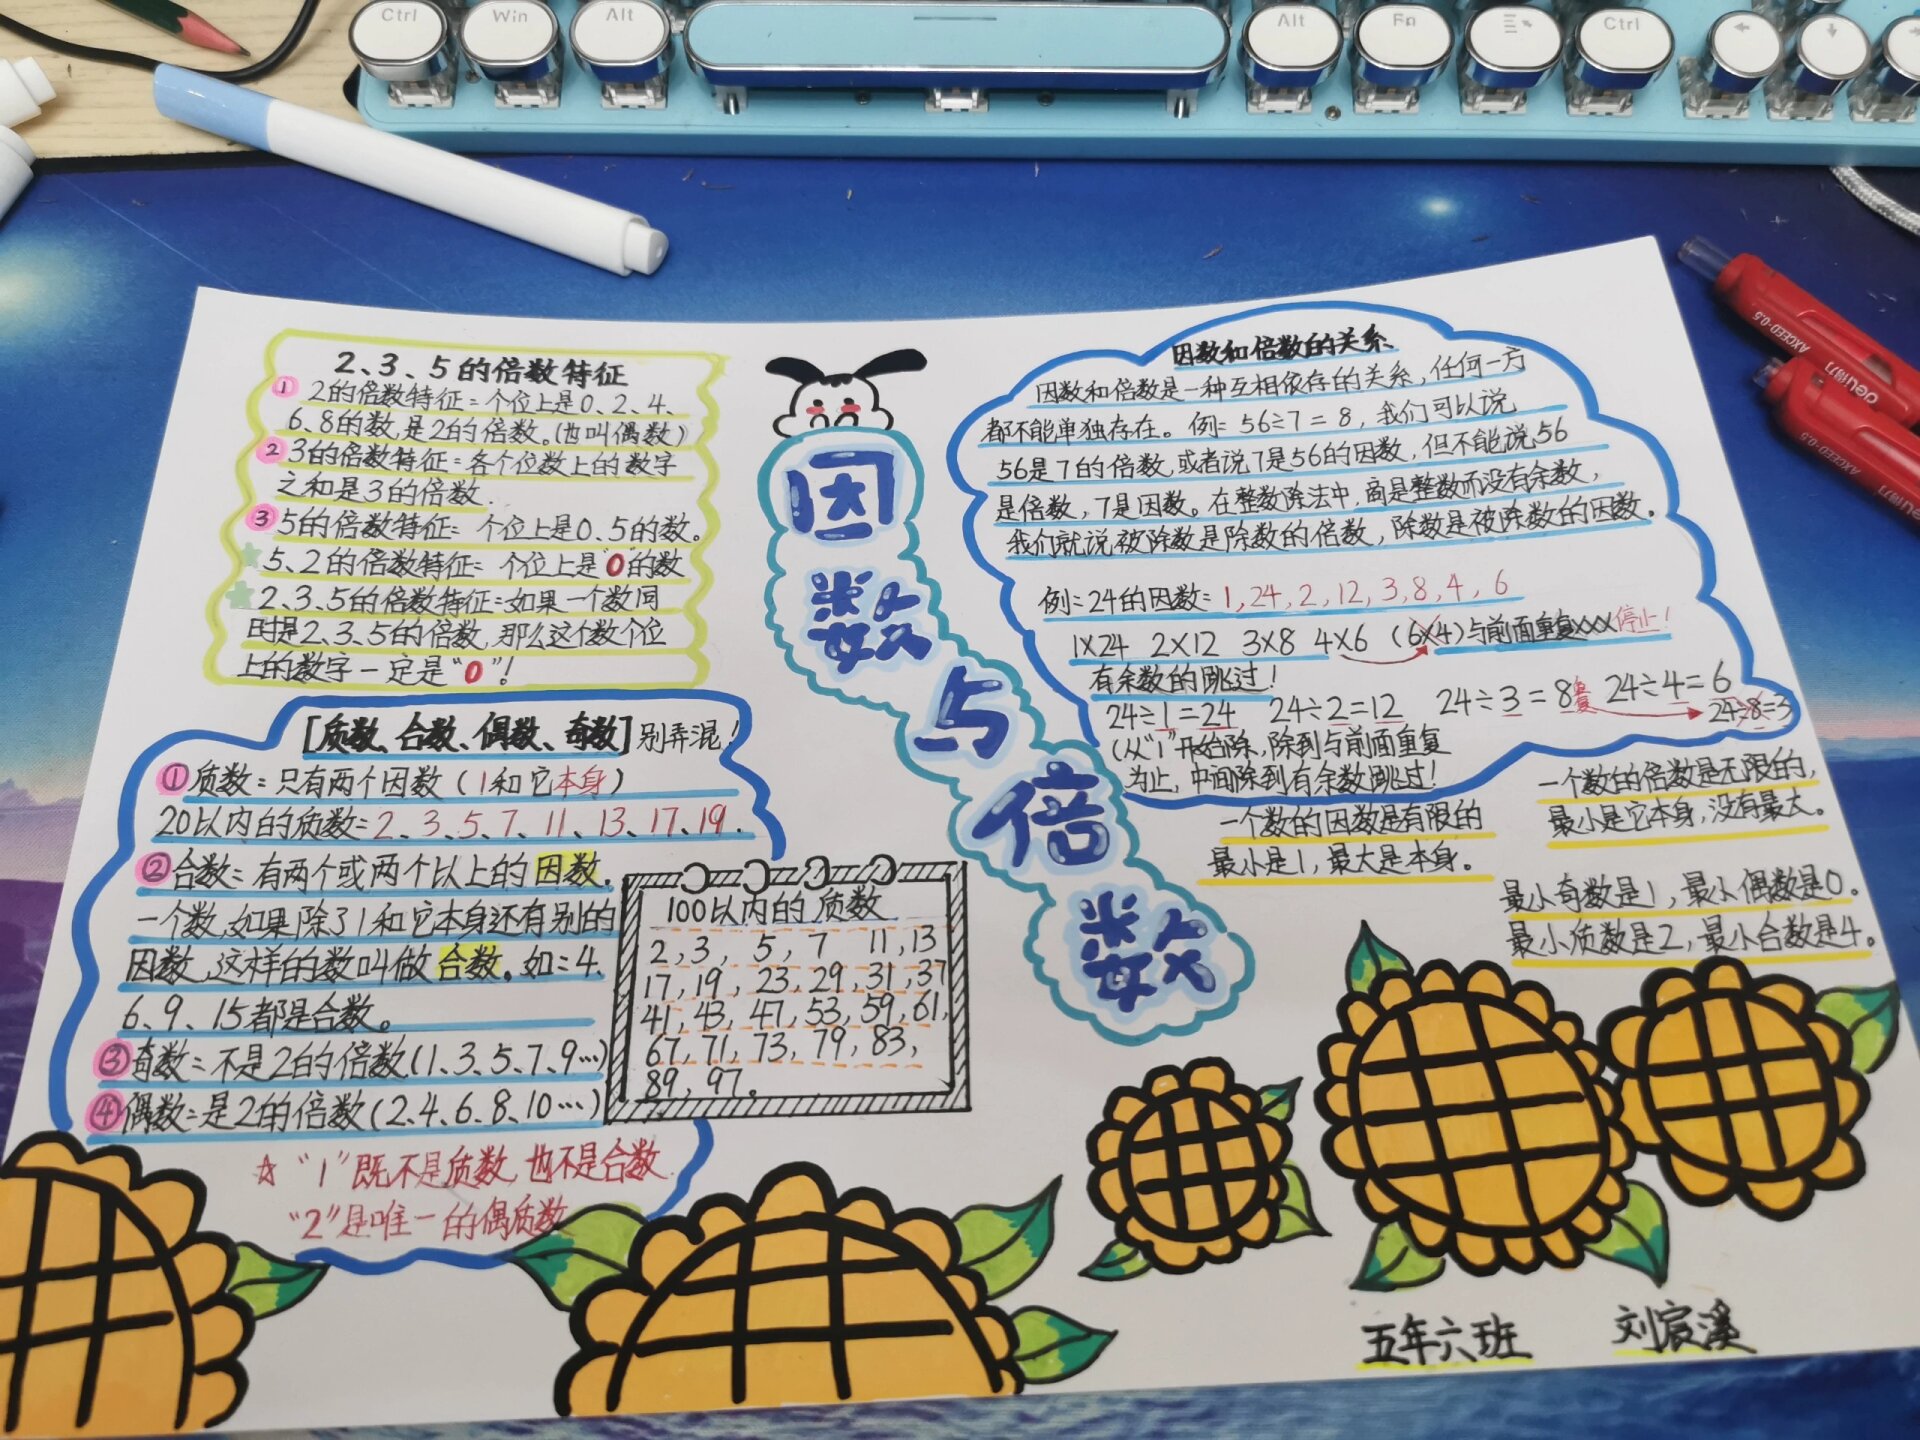 Ctrl
Win
Alt
Alt
Fn
Ctrl
AXCEED-0.5
deli得力
AXCEED-0.5
deli得力
2、3、5的倍数特征
① 2的倍数特征：个位上是0、2、4、
6、8的数，是2的倍数。（也叫偶数）
② 3的倍数特征：各个位数上的数字
之和是3的倍数.
③ 5的倍数特征：个位上是0、5的数。
5、2的倍数特征：个位上是“0”的数
2、3、5的倍数特征：如果一个数同
时是2、3、5的倍数，那么这个数个位
上的数字一定是“0”！
因数与倍数
因数和倍数的关系
因数和倍数是一种互相依存的关系，任何一方
都不能单独存在。例：56÷7=8，我们可以说
56是7的倍数，或者说7是56的因数，但不能说56
是倍数，7是因数。在整数除法中，商是整数而没有余数，
我们就说被除数是除数的倍数，除数是被除数的因数。
例：24的因数：1，24，2，12，3，8，4，6
1×24 2×12 3×8 4×6 （6×4）与前面重复×××停止！
有余数的跳过！
24÷1=24 24÷2=12 24÷3=8 重复 24÷4=6
24÷8=3
（从“1”开始除，除到与前面重复
为止，中间除到有余数跳过！
一个数的因数是有限的
最小是1，最大是本身。
一个数的倍数是无限的，
最小是它本身，没有最大。
最小奇数是1，最小偶数是0。
最小质数是2，最小合数是4。
[质数、合数、偶数、奇数]别弄混！
①质数：只有两个因数（1和它本身）
20以内的质数：2、3、5、7、11、13、17、19.
②合数：有两个或两个以上的因数.
一个数，如果除了1和它本身还有别的
因数，这样的数叫做合数。如：4、
6、9、15都是合数。
③奇数：不是2的倍数（1、3、5、7、9…）
④偶数：是2的倍数（2、4、6、8、10…）
☆“1”既不是质数，也不是合数
“2”是唯一的偶质数
100以内的质数
2，3，5，7 11，13
17，19，23，29，31，37
41，43，47，53，59，61，
67，71，73，79，83，
89，97。
五年六班 刘宸溪